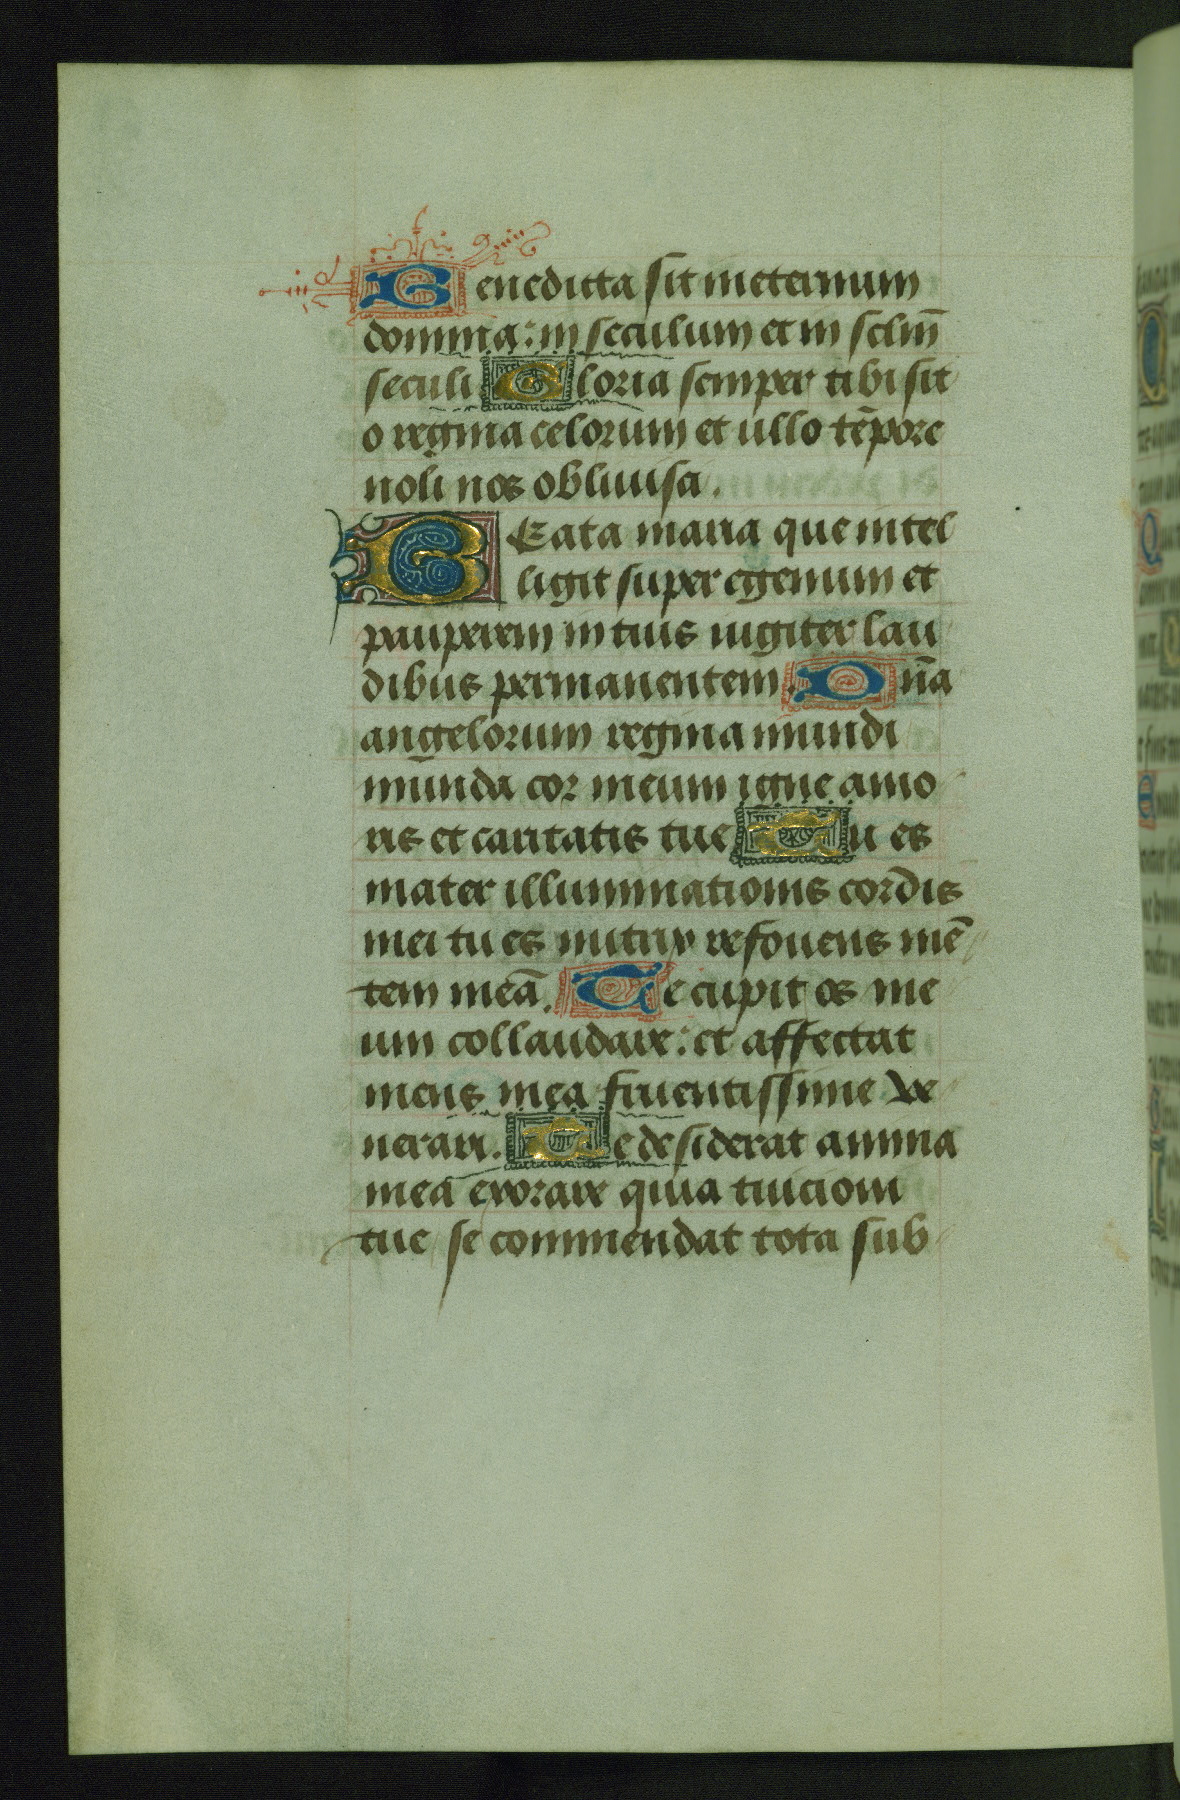 Benedicta sit in eternum
domina: in seculum et in sclm̄
seculi Gloria semper tibi sit
o regina celorum et ullo tēpore
noli nos oblivisci.
BEata maria que intel
ligit super egenum et
pauperem in tuis iugiter lau
dibus permanentem. Dn̄a
angelorum regina mundi
munda cor meum igne amo
ris et caritatis tue Tu es
mater illuminationis cordis
mei tu es nutrix refovens mē
tem meā. Te cupit os me
um collaudare: et affectat
mens mea ferventissime ve
nerari. Te desiderat anima
mea exorare quia tuicioni
tue se commendat tota sub